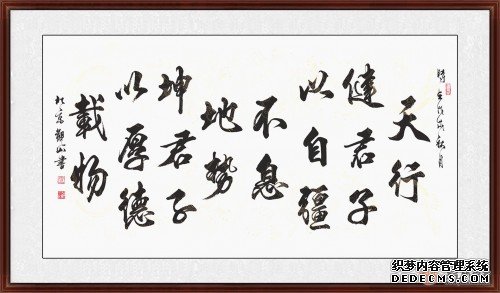 天行
健君子
以自疆
不息
地勢
坤君子
以厚德
載物
织梦内容管理系统
DEDECMS.COM